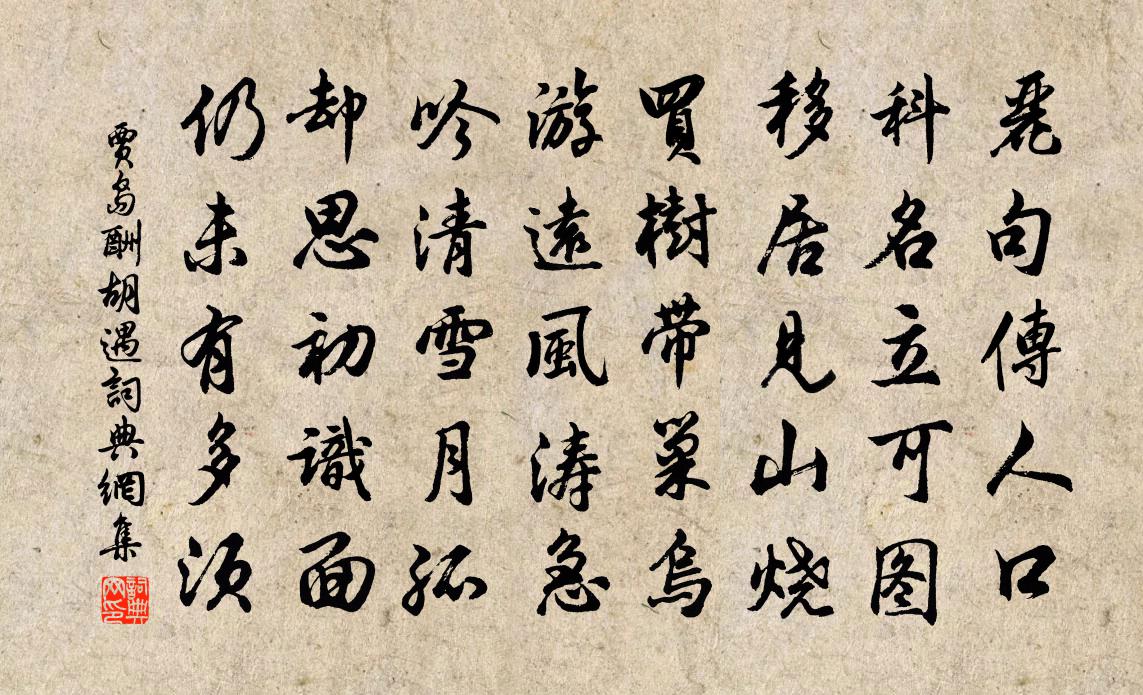 麗句傳人口
科名立可图
移居見山烧
買樹帶巢烏
游遠風涛急
吟清雪月孤
却思初識面
仍未有多須
賈島酬胡遇詞典網集
詞典网印